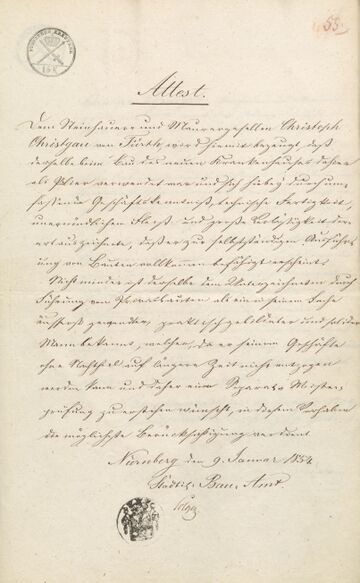 55.
Attest.
Dem Steinhauer- und Maurergesellen Christoph
Christgau von Fürth, wird hiemit bezeugt, daß
derselbe beim Bau des neuen Krankenhauses dahier
als Polier verwendet war und sich hiebey durch um-
fassende Geschäftskenntniß, technische Fertigkeit,
unermüdlichen Fleiß und große Umsichtigkeit der-
art auszeichnete, daß er zur selbstständigen Ausführ-
ung von Bauten vollkommen befähigt erscheint.
Nicht minder ist derselbe dem Unterzeichneten durch
Führung von Privatbauten als ein in seinem Fache
äusserst gewandter, praktisch gebildeter und solider
Mann bekannt, welcher, da er seinem Geschäfte
ohne Nachtheil auf längere Zeit nicht entzogen
werden kann und daher eine Separat- Meister-
prüfung zu erstehen wünscht, in diesem Vorhaben
die möglichste Berücksichtigung verdient.
Nürnberg den 9. Januar 1854
Städtis. Bau-Amt.
Solger